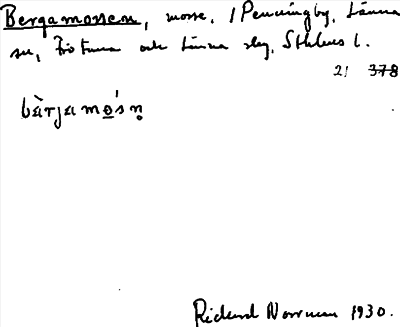 Bergamossen, mosse, /Penningby, Länna
sn, Frötuna och Länna skg, Sthlms l.
21 378
bàrjamo̲śn̥
Rickard Norrman 1930.